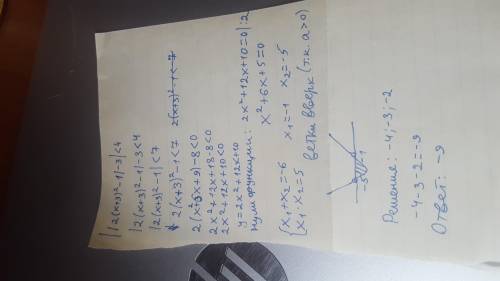 ||2(x+3)²-1|-3|<4
|2(x+3)²-1|-3<4
|2(x+3)²-1|<7
2(x+3)²-1<7 2(x+3)²-1<-7
2(x²+6x+9)-8<0
2x²+12x+18-8<0
2x²+12x+10<0
y=2x²+12x+10
нули функции: 2x²+12x+10=0|:2
x²+6x+5=0
{x₁+x₂=-6
x₁·x₂=5 x₁=-1 x₂=-5
ветки вверх (т.к. a>0)
-5 -1
Решение: -4;-3;-2
-4-3-2=-9
Ответ: -9